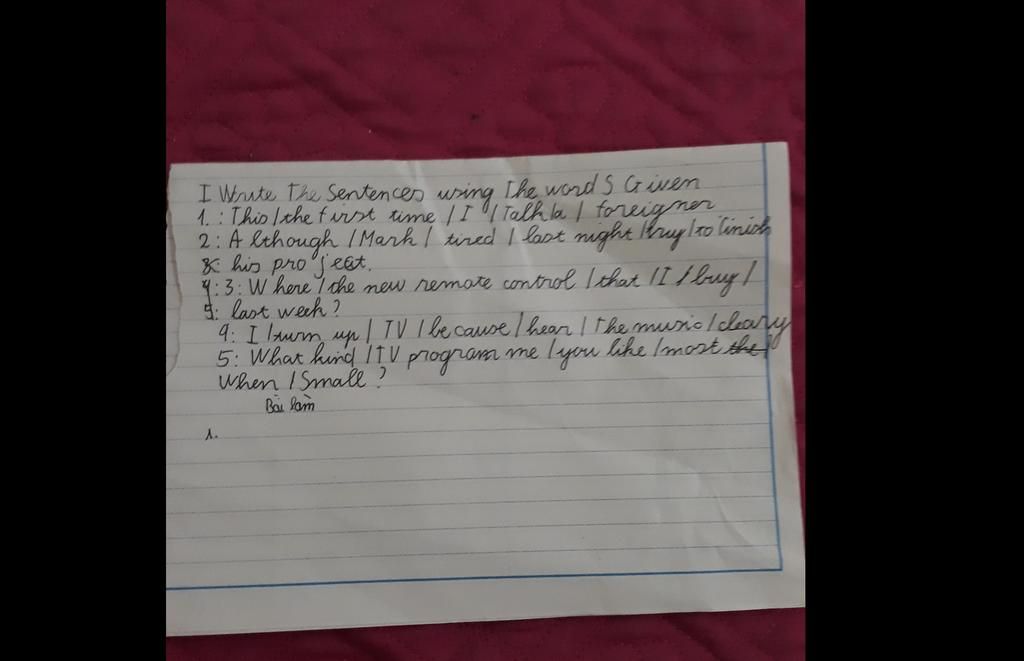 I Write The Sentences using The word S Given
1. : This / the first time / I / Talk / a / foreigner
2 : Although / Mark / tired / last night / try / to finish
his project.
3 : Where / the new remote control / that / I / buy /
last week ?
4 : I / turn up / TV / because / hear / The music / cleary
5 : What kind / TV program me / you like / most the /
When / Small ?
Bài làm
1.